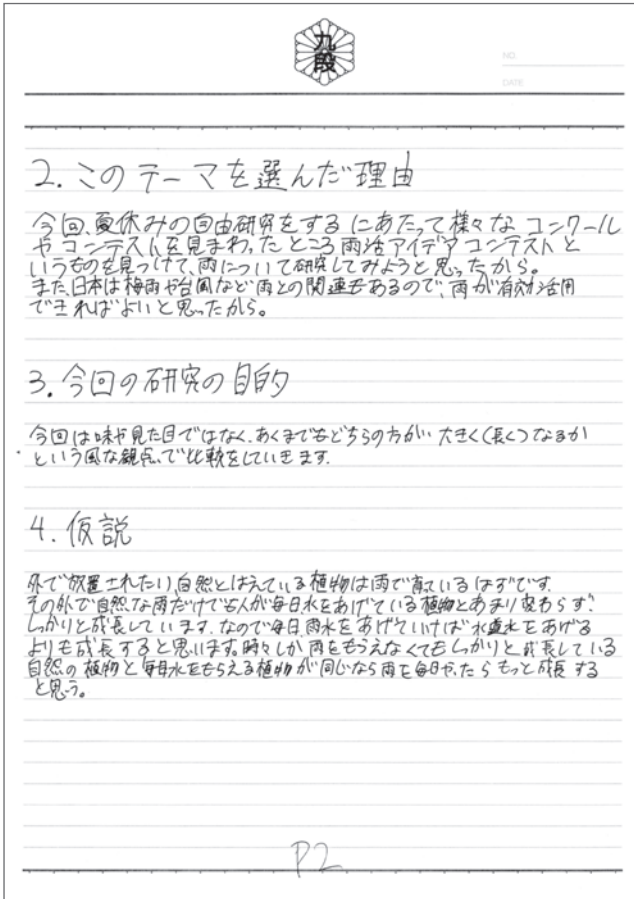 九段
NO.
DATE
2. このテーマを選んだ理由
今回、夏休みの自由研究をするにあたって様々なコンクール
やコンテストを見まわったところ雨活アイデアコンテストと
いうものを見つけて、雨について研究してみようと思ったから。
また、日本は梅雨や台風など雨との関連もあるので、雨が有効活用
できればよいと思ったから。
3. 今回の研究の目的
今回は味や見た目ではなく、あくまでもどちらの方がい大きく(長く)なるか
という風な観点で比較をしていきます。
4. 仮説
外で放置されたり、自然とはえている植物は雨で育っているはずです。
その外で自然な雨だけでも人が毎日水をあげている植物とあまり変わらず、
しっかりと成長しています。なので毎日雨水をあげていけば水道水をあげる
よりも成長すると思います。時々しか雨をもらえなくてもしっかりと成長している
自然の植物と毎日水をもらえる植物が同じなら雨を毎日やったらもっと成長する
と思う。
P2